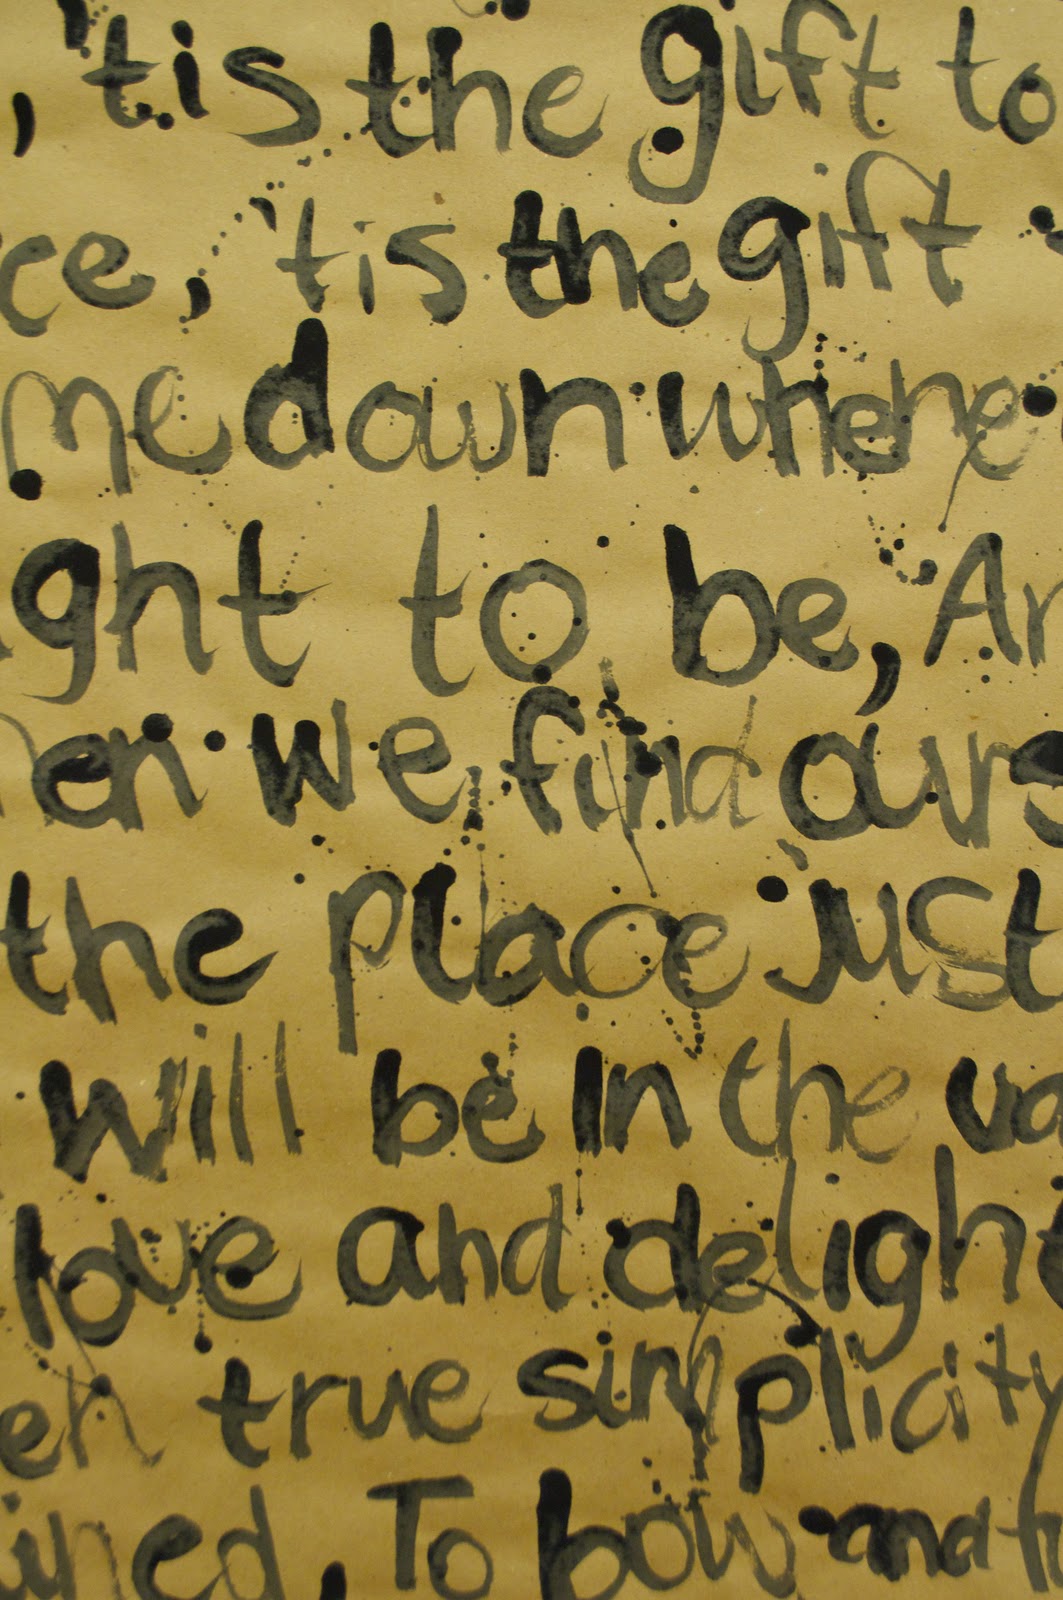 , 'tis the gift to
ce, 'tis the gift
me down where
ght to be, An
en we find ours
the place just
will be in the va
love and delight
en true simplicity
ined, To bow and